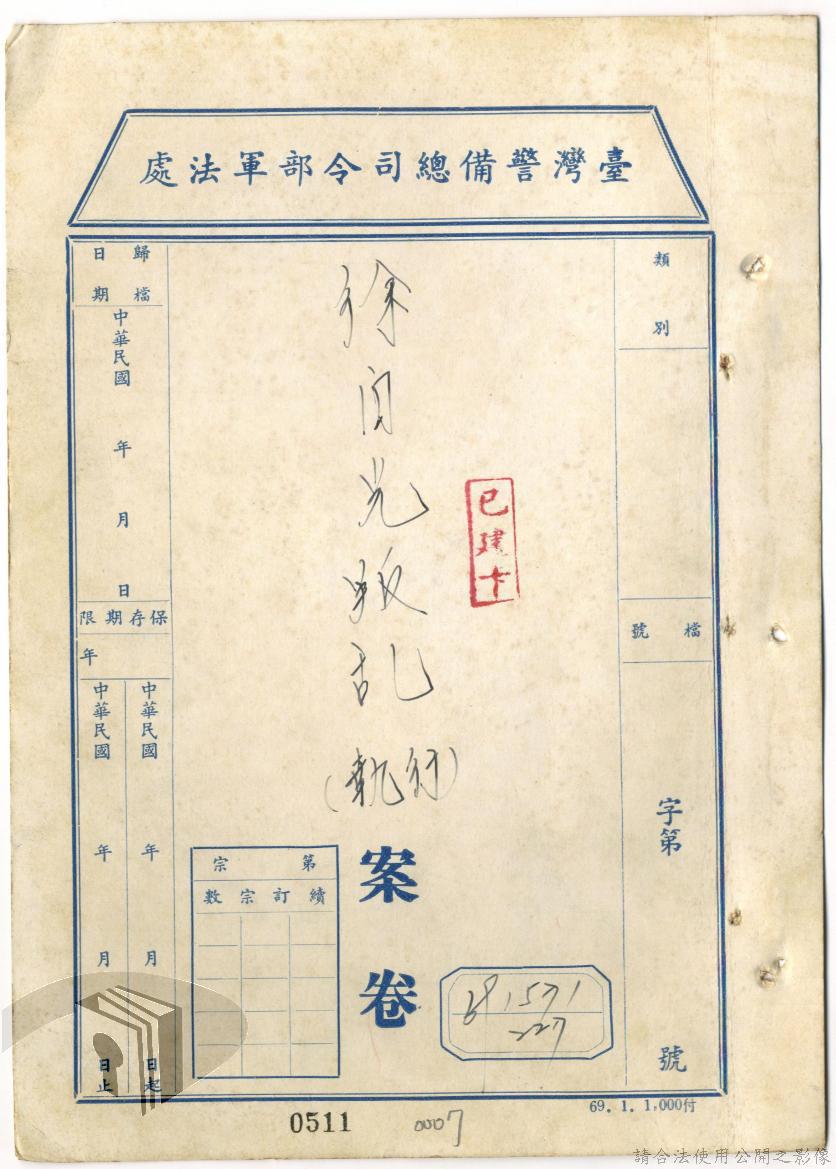 臺灣警備總司令部軍法處
類別
檔號
字第
號
徐自光叛乱
(執行)
案卷
已建卡
227
第宗
續訂宗數
歸檔日期
中華民國
年
月
日
保存期限
年
中華民國 年 月 日起
中華民國 年 月 日止
69. 1. 1,000付
0511
0007
請合法使用公開之影像